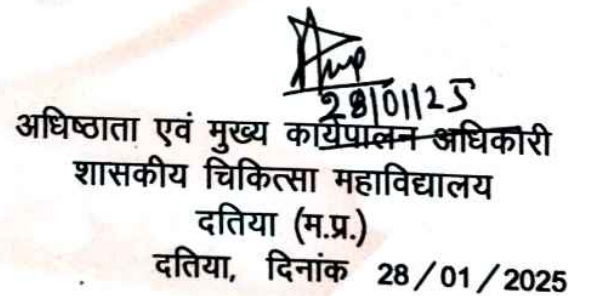 28/01/25
अधिष्ठाता एवं मुख्य कार्यपालन अधिकारी
शासकीय चिकित्सा महाविद्यालय
दतिया (म.प्र.)
दतिया, दिनांक 28/01/2025